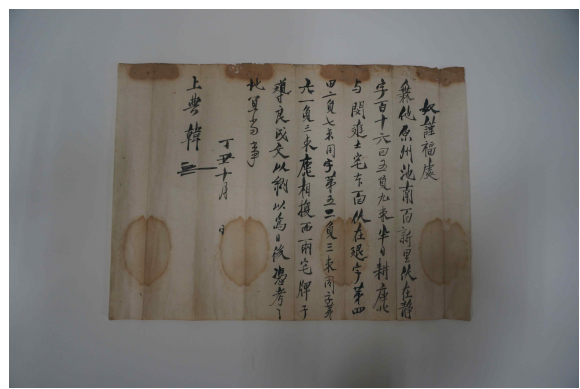 奴謹福處
無他原州池南面新里伏在靜
字百十六田五負九束半日耕庫乙
与閔進士宅本面伏在字第四
田二負七束同字第五二負三束同字第
六一負三束庫相換而兩宅牌子
導良成文以納以爲日後憑考之
地宜當事
丁丑十月 日
上典韓